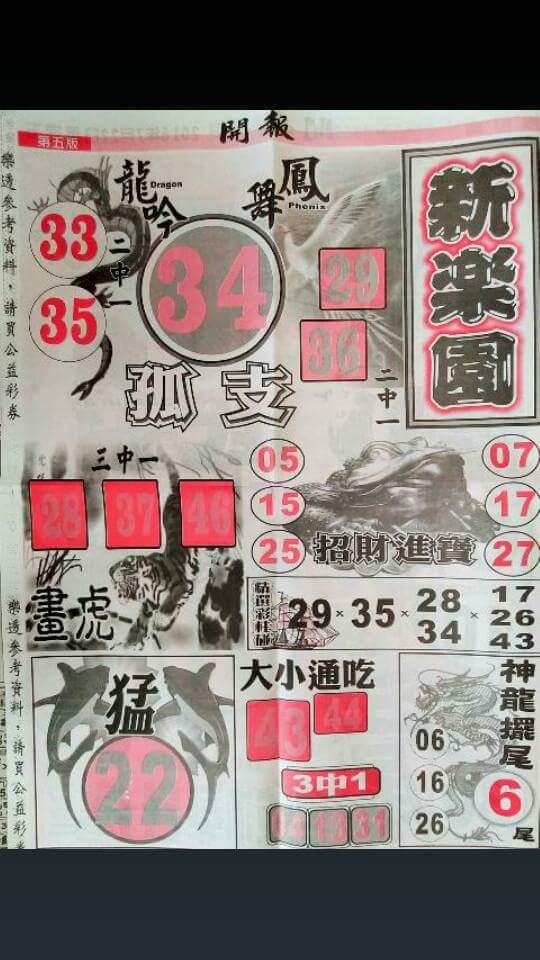 開報
第五版
樂透參考資料，請買公益彩券
龍吟
Dragon
鳳舞
Phenix
新楽園
33
35
二中一
34
29
36
二中一
孤支
三中一
28 37 46
畫虎
05
15
25
招財進寶
07
17
27
精選彩柱碰
29×35×28 34×17 26 43
樂透參考資料，請買公益彩券
猛
22
大小通吃
43 44
3中1
04 13 31
神龍擺尾
06
16
26
6
尾